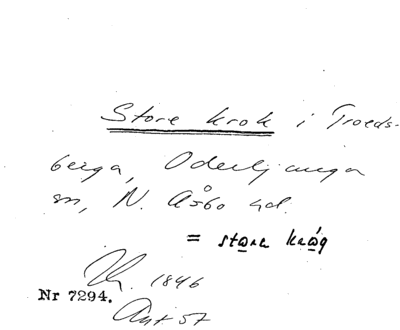 Store krok i Troeds-
berga, Oderljunga
sn, N. Åsbo hd.
= stora kråg
1846
Nr 7294.
Ant 57